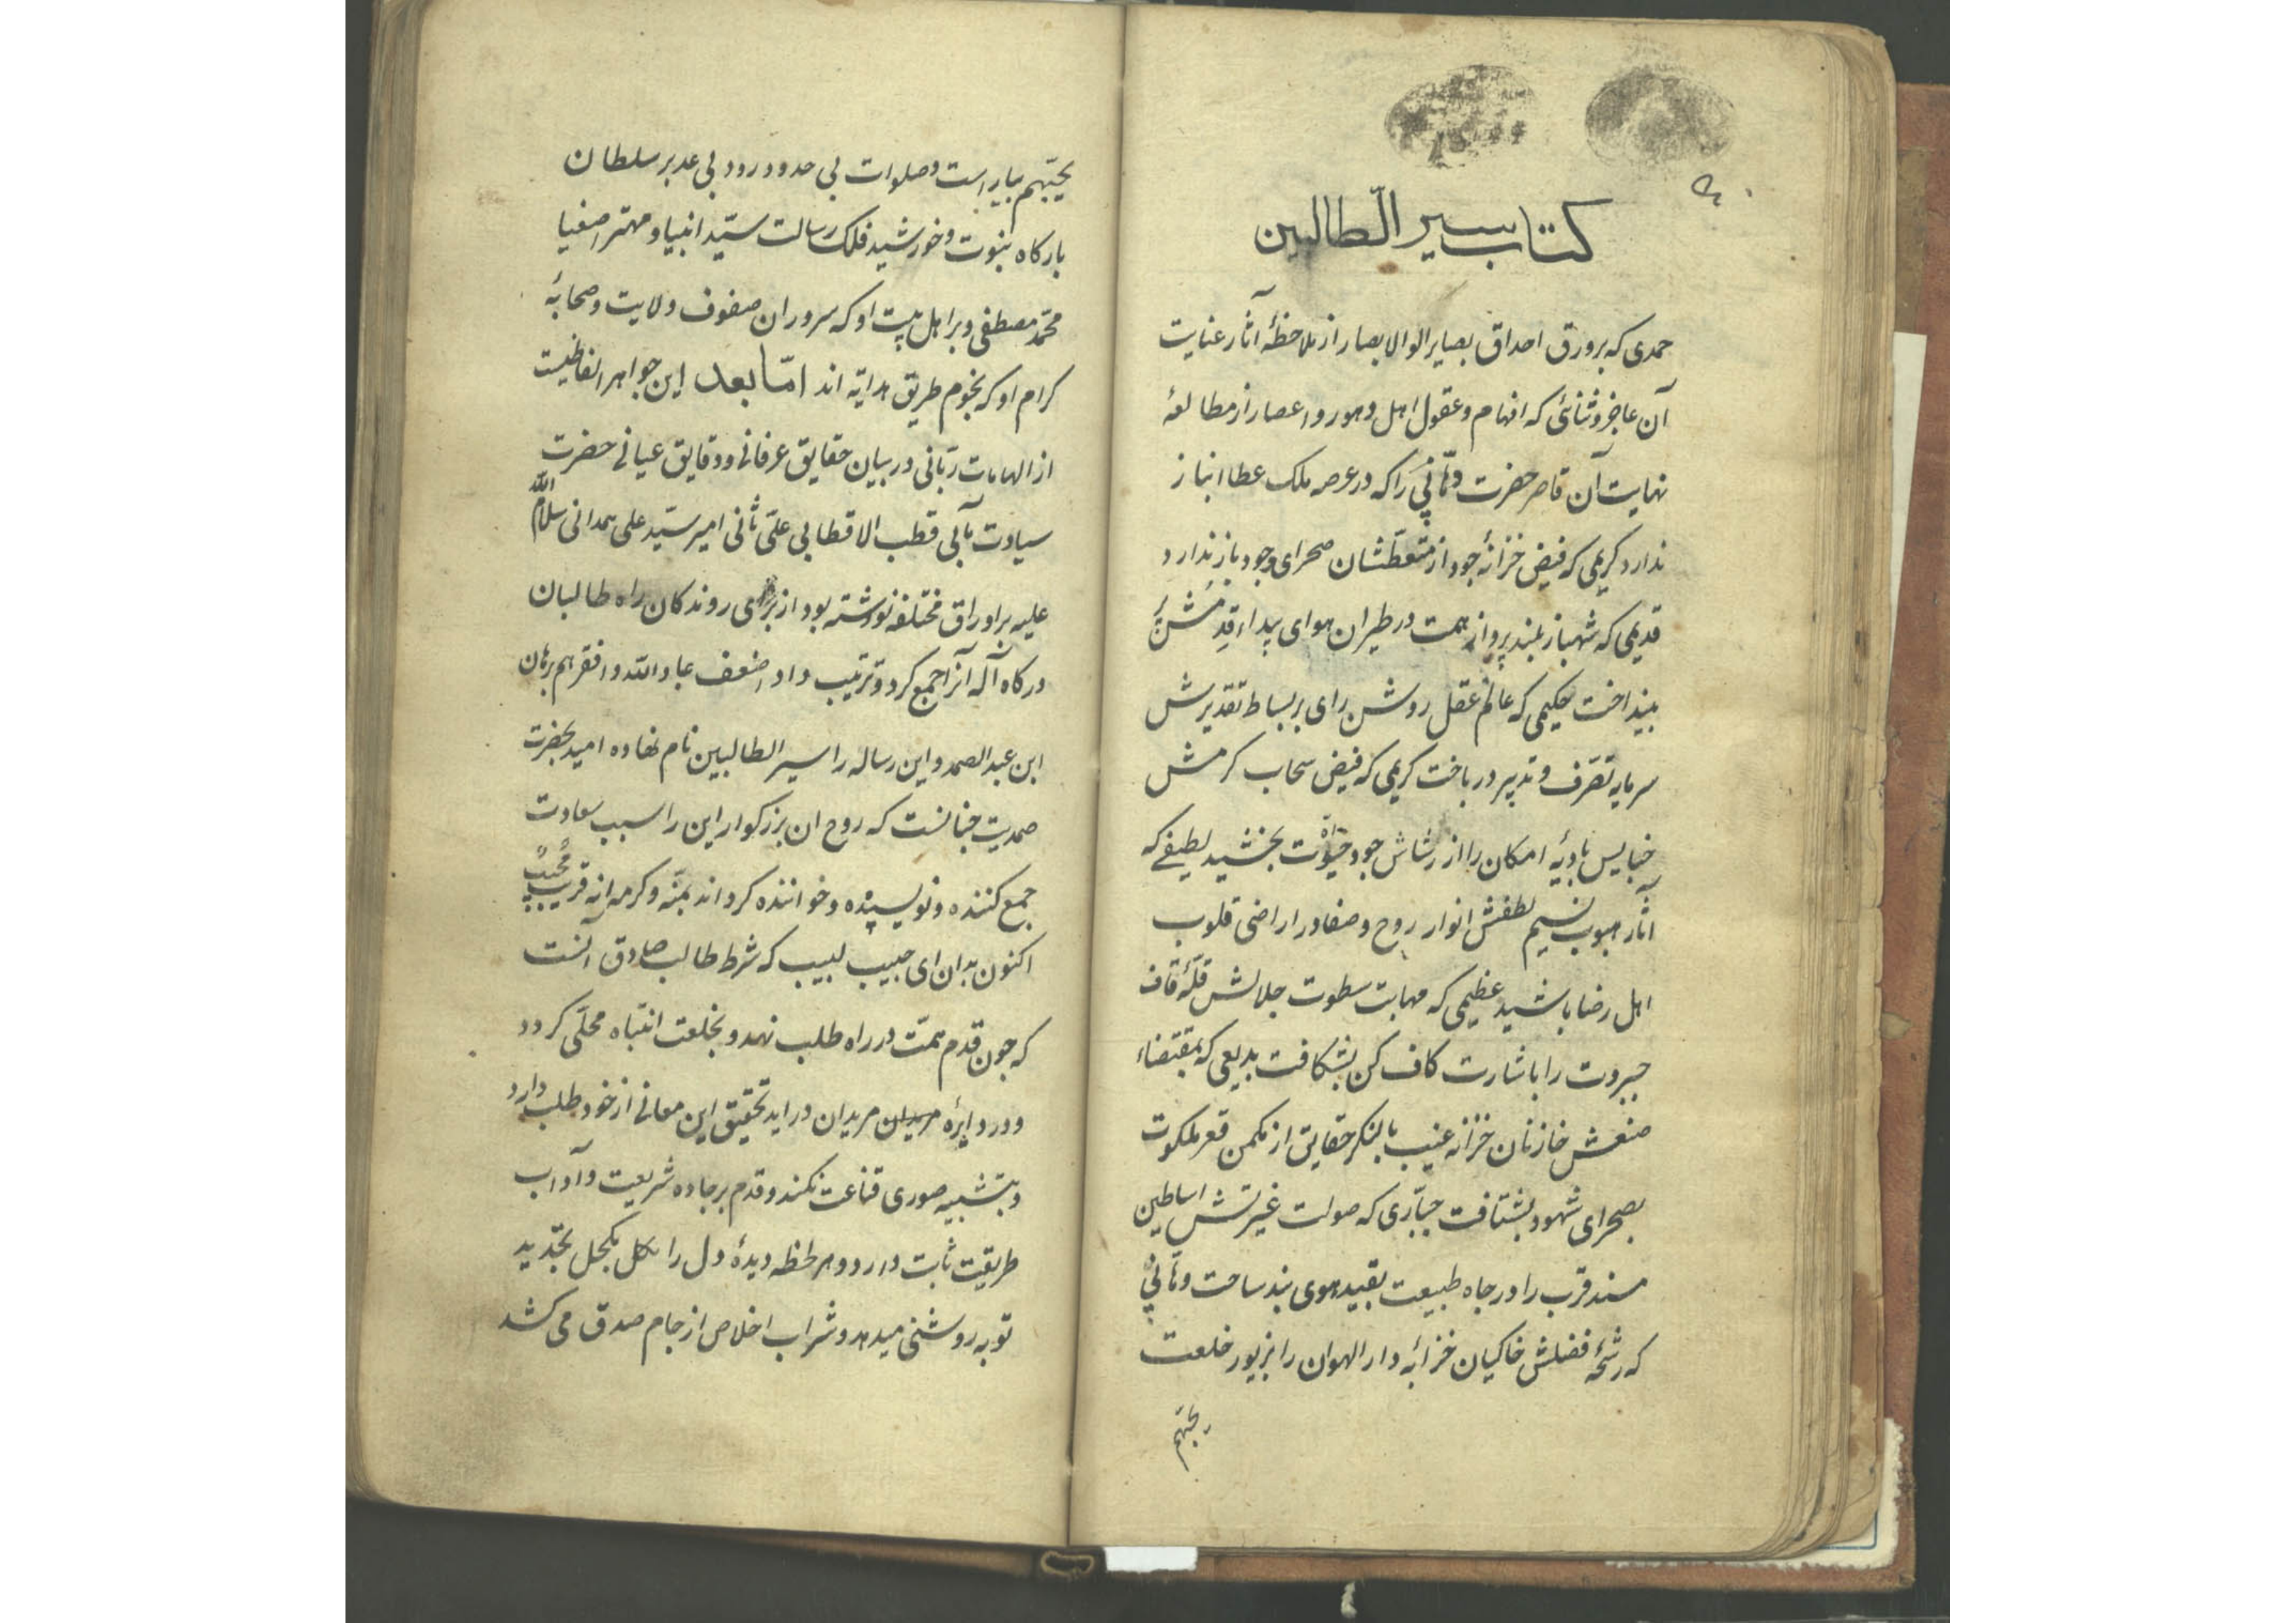 کتاب سیر الطالبین
حمدی که بر ورق احداق بصایر الوالابصار از ملاحظهٔ آثار عنایت
آن عاجز و ثنائی که افهام و عقول اهل دهور و اعصار از مطالعهٔ
نهایت آن قاصر حضرت وهّابی را که در عرصه ملک عطا انباز
ندارد کریمی که فیض خزانهٔ جود از متعطّشان صحرای وجود باز ندارد
قدیمی که شهباز بلند پرواز همت در طیران هوای بیداء قِدمش پَر
بینداخت حکیمی که عالم عقل روشن رای بر بساط تقدیرش
سرمایه تصرّف و تدبیر درباخت کریمی که فیض سحاب کرمش
خبایس بادیهٔ امکان را از رشاش جود حیوٰة بخشید لطیفی که
آثار هبوب نسیم لطفش انوار روح و صفا در اراضی قلوب
اهل رضا پاشید عظیمی که مهابت سطوت جلالش قلّهٔ قاف
جبروت را باشارت کاف کن بشکافت بدیعی که بمقتضاء
صنعش خازنان خزانه غیب با لنکر حقایق از مکمن قعر ملکوت
بصحرای شهود بشتافت جبّاری که صولت غیرتش اساطین
مسند قرب را در چاه طبیعت بقید هوی بند ساخت وهّابی
که رشحهٔ فضلش خاکیان خزابهٔ دار الهوان را بزیور خلعت
یحبّهم
یحبّهم بیاراست و صلوات بی حد و درود بی عد بر سلطان
بارکاه نبوت و خورشید فلک رسالت سیّد انبیا و مهتر اصفیا
محمّد مصطفی و بر اهل بیت او که سروران صفوف ولایت و صحابهٔ
کرام او که نجوم طریق هدایه اند امّا بعد این جواهر الفاظیست
از الهامات ربّانی در بیان حقایق عرفانی و دقایق عیانی حضرت
سیادت مآبی قطب الاقطابی علیّ ثانی امیر سیّد علی همدانی سلام اللّه
علیه بر اوراق مختلفه نوشته بود از برای روندکان راه طالبان
درکاه آله آنرا جمع کرد و ترتیب داد اضعف عباد اللّه و افقرهم برهان
ابن عبد الصمد و این رساله را سیر الطالبین نام نهاده امید بحضرت
صمدیت چنانست که روح ان بزرکوار این را سبب سعادت
جمع کننده و نویسنده و خواننده کرداند بمنّه و کرمه انه قریب مُجیبٌ
اکنون بدان ای حبیب لبیب که شرط طالب صادق آنست
که چون قدم همّت در راه طلب نهد و بخلعت انتباه محلّی کردد
و در دایرهٔ مریدان مریدان دراید تحقیق این معانی از خود طلب دارد
و بتشبیه صوری قناعت نکند و قدم بر جاده شریعت و آداب
طریقت ثابت دارد و هر لحظه دیدهٔ دل را بکحل تجدید
توبه روشنی میدهد و شراب اخلاص از جام صدق می کشد